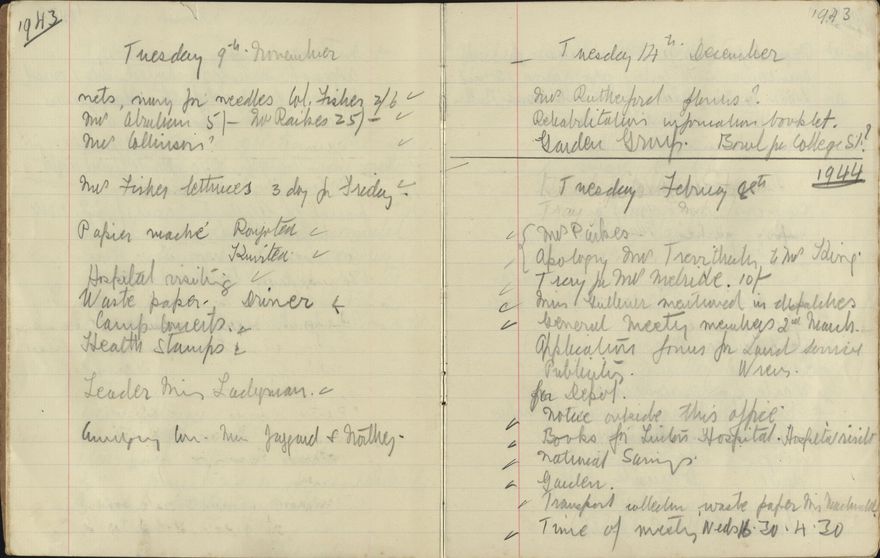 1943
Tuesday 9th November
nets, for needles Col. Fisher 2/6
Mrs Abraham 5/- Mrs Raikes 25/-
Mrs Collinson?
Mrs Fisher lettuces 3 day for Friday
Papier maché
Knitted
Hospital visiting
Waste paper. Driver
Camp Concerts.
Health Stamps
Leader Miss Ladyman.
Mrs Jaggard &
1943
Tuesday 14th December
Mrs Rutherford flowers?
Rehabilitation information booklet.
Garden Group. Bowl for College St?
1944
Tuesday February
Mrs Raikes
Apology Mrs to Mrs King
Tray for Mrs McBride. 10/-
Miss mentioned in despatches
General Meeting members 2nd March.
Application forms for Land service
Publicity. Wrens.
for Depot.
Notice outside this office
Books for Linton Hospital. Hospital visits
National Savings.
Garden.
Transport collection waste paper
Time of meeting Weds 30. 4.30